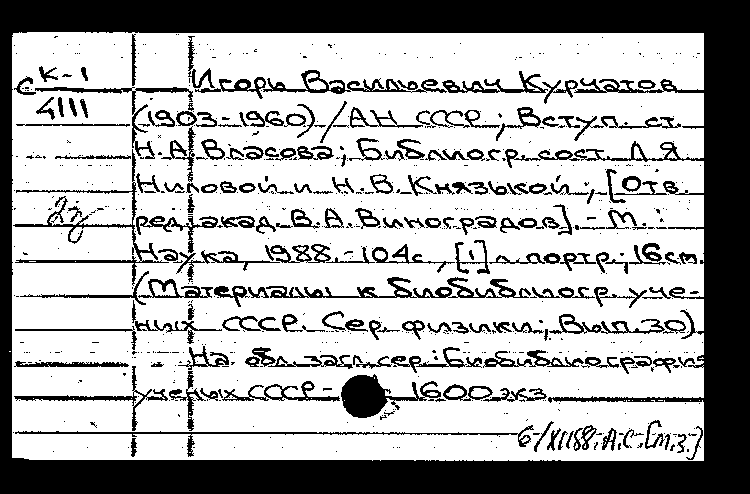 С К-1 Игорь Васильевич Курчатов
4111 (1903-1960) / АН СССР ; Вступ. ст.
Н.А. Власова ; Библиогр. сост. Л Я
Ниловой и Н.В. Князькой ; [Отв.
2з ред. акад. В.А. Виноградов]. - М. :
Наука, 1988. - 104с, [1] л. портр. ; 16 см.
(Материалы к биобиблиогр. уче-
ных СССР. Сер. физики ; Вып. 30)
На обл. загл. сер. : Биобиблиография
ученых СССР - 1600 экз.
6/XII88. А.С. [М.З.]